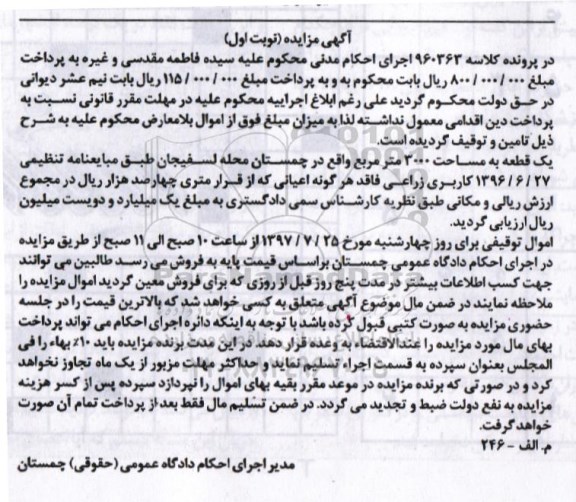 آگهی مزایده (نوبت اول)
در پرونده کلاسه ۹۶۰۳۶۳ اجرای احکام مدنی محکوم علیه سیده فاطمه مقدسی و غیره به پرداخت
مبلغ ۸۰۰/۰۰۰/۰۰۰ ریال بابت محکوم به و به پرداخت مبلغ ۱۱۵/۰۰۰/۰۰۰ ریال بابت نیم عشر دیوانی
در حق دولت محکـوم گردید علی رغم ابلاغ اجراییه محکوم علیه در مهلت مقرر قانونی نسبت به
پرداخت دین اقدامی معمول نداشته لذا به میزان مبلغ فوق از اموال بلامعارض محکوم علیه به شرح
ذیل تامین و توقیف گردیده است.
یک قطعه به مساحت ۳۰۰۰ متر مربع واقع در چمستان محله لسفیجان طبق مبایعنامه تنظیمی
۱۳۹۶/۶/۲۷ کاربری زراعی فاقد هر گونه اعیانی که از قرار متری چهارصد هزار ریال در مجموع
ارزش ریالی و مکانی طبق نظریه کارشناس سمی دادگستری به مبلغ یک میلیارد و دویست میلیون
ریال ارزیابی گردید.
اموال توقیفی برای روز چهارشنبه مورخ ۱۳۹۷/۷/۲۵ از ساعت ۱۰ صبح الی ۱۱ صبح از طریق مزایده
در اجرای احکام دادگاه عمومی چمستان براساس قیمت پایه به فروش می رسد طالبین می توانند
جهت کسب اطلاعات بیشتر در مدت پنج روز قبل از روزی که برای فروش معین گردید اموال مزایده را
ملاحظه نمایند در ضمن مال موضوع آگهی متعلق به کسی خواهد شد که بالاترین قیمت را در جلسه
حضوری مزایده به صورت کتبی قبول کرده باشد با توجه به اینکه دائره اجرای احکام می تواند پرداخت
بهای مال مورد مزایده را عندالاقتضاء به وعده قرار دهد در این مدت برنده مزایده باید ۱۰٪ بهاء را فی
المجلس بعنوان سپرده به قسمت اجراء تسلیم نماید و حداکثر مهلت مزبور از یک ماه تجاوز نخواهد
کرد و در صورتی که برنده مزایده در موعد مقرر بقیه بهای اموال را نپردازد سپرده پس از کسر هزینه
مزایده به نفع دولت ضبط و تجدید می گردد. در ضمن تسلیم مال فقط بعد از پرداخت تمام آن صورت
خواهد گرفت.
م. الف - ۲۴۶
مدیر اجرای احکام دادگاه عمومی (حقوقی) چمستان